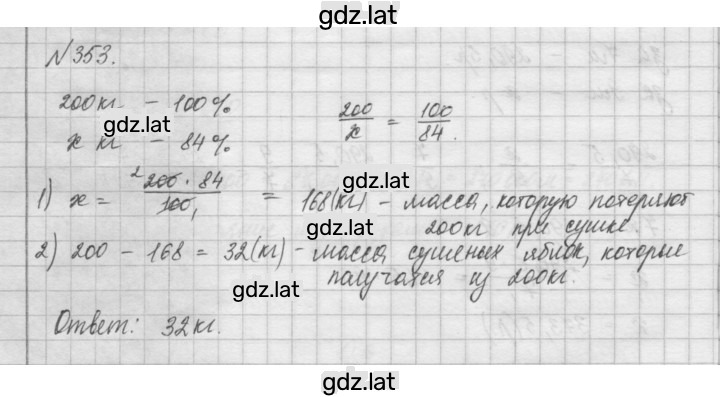 gdz.lat
N353.
200кг - 100%
x кг - 84%
200/x = 100/84.
gdz.lat
gdz.lat
1) x = 200 · 84 / 100 = 168(кг) - масса, которую потеряют
2 1
200кг при сушке.
gdz.lat
2) 200 - 168 = 32(кг) - масса сушеных яблок, которые
получатся из 200кг.
gdz.lat
Ответ: 32кг.
gdz.lat